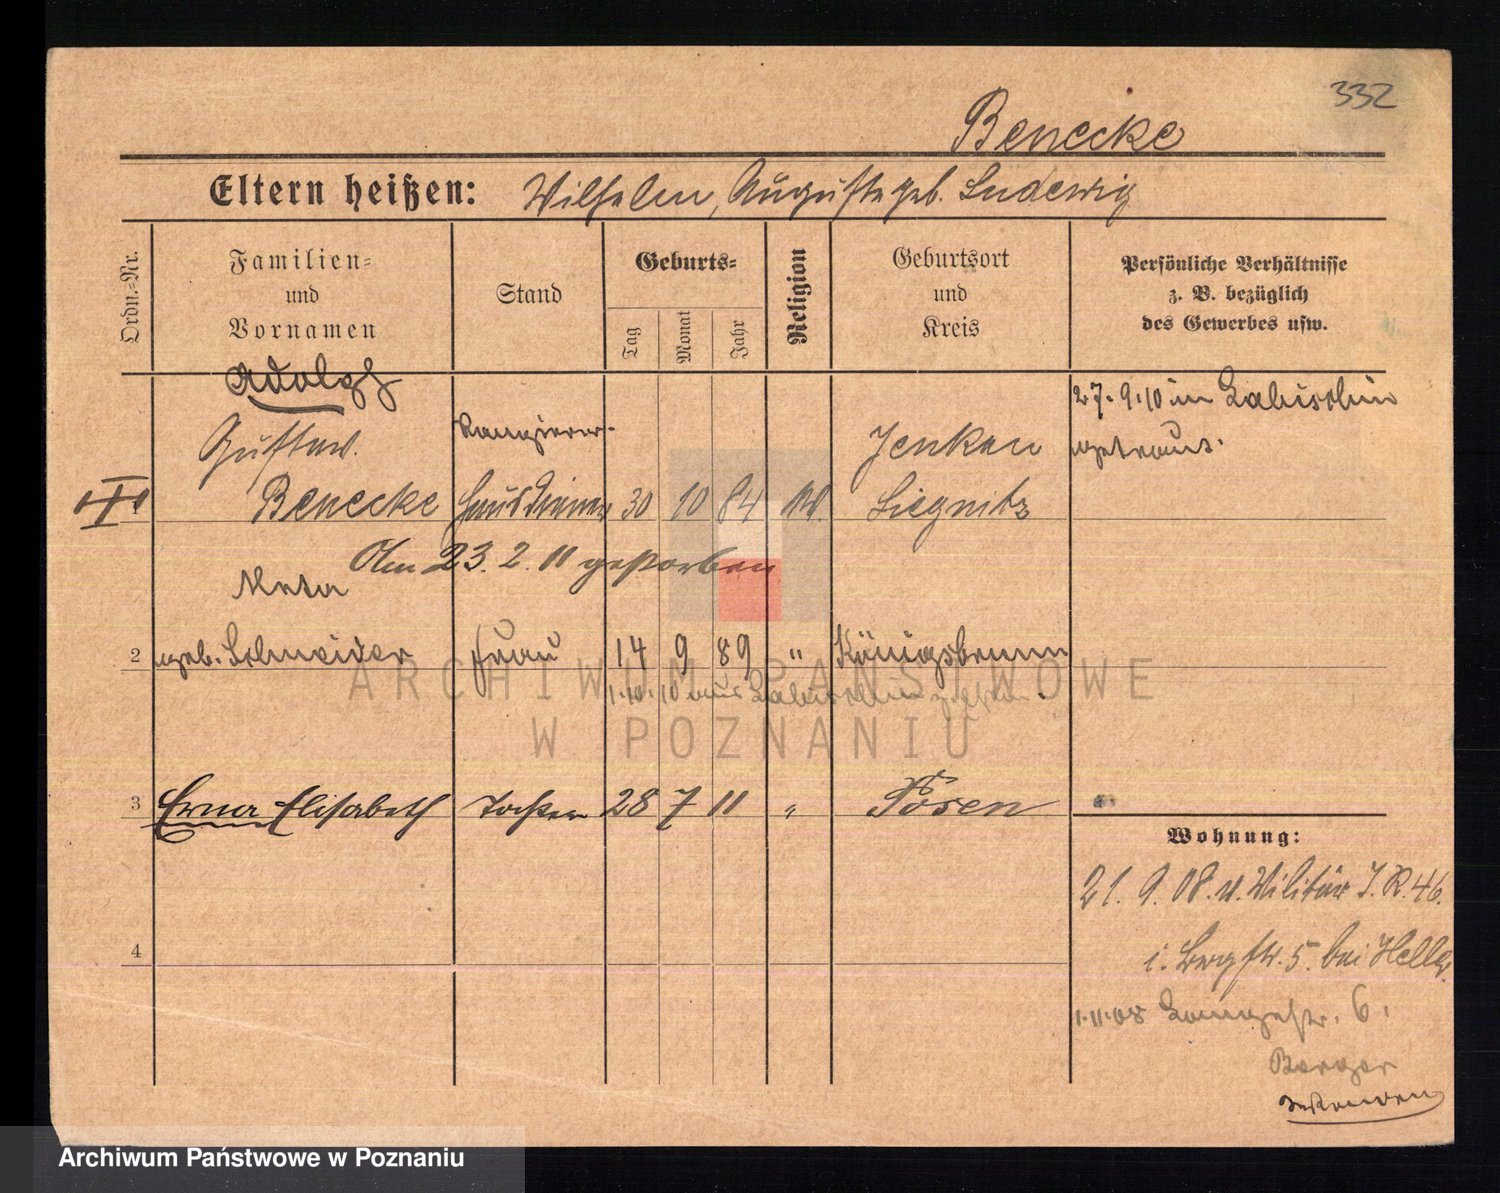 332
Benecke
Eltern heißen: Wilhelm, Auguste geb. Ludewig
Ordn.=Nr.
Familien=
und
Vornamen
Stand
Geburts=
Tag
Monat
Jahr
Religion
Geburtsort
und
Kreis
Persönliche Verhältnisse
z. B. bezüglich
des Gewerbes usw.
Adolf
Gustav
Rangierer
Jenkau
27.9.10 in Labischin
getraut.
I
1 Benecke Hausdiener 30 10 84 Liegnitz
Am 23.2.11 gestorben
Meta
2 geb. Schneider Frau 14 9 89 " Königsbrunn
1.10.10 aus Labischin
3 Erna Elisabeth Tochter 28 7 11 " Posen
Wohnung:
21. 9. 08. v. Militär I. R. 46.
4
i. Bergstr. 5. bei Heller
1.11.08 Langestr. 6.
Berger
ARCHIWUM PAŃSTWOWE
W POZNANIU
Archiwum Państwowe w Poznaniu